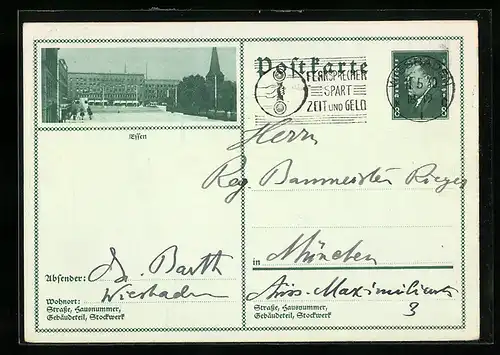 Postkarte
FERNSPRECHER
SPART
ZEIT UND GELD
8 8
Essen
Herrn
Reg. Baumeister Rieger
in München
Absender: Dr. Barth
Wohnort: Wiesbaden
Straße, Hausnummer,
Gebäudeteil, Stockwerk
3
Straße, Hausnummer,
Gebäudeteil, Stockwerk